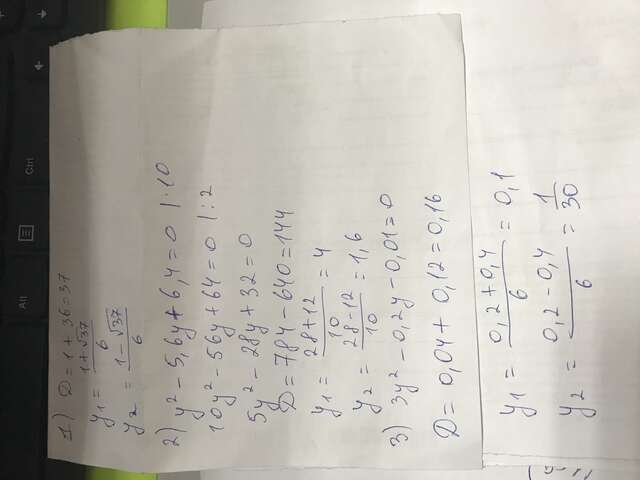 Alt
Ctrl
1) D = 1 + 36 = 37
y₁ = (1 + √37)/6
y₂ = (1 − √37)/6
2) y² − 5,6y + 6,4 = 0 |·10
10y² − 56y + 64 = 0 |:2
5y² − 28y + 32 = 0
D = 784 − 640 = 144
y₁ = (28+12)/10 = 4
y₂ = (28−12)/10 = 1,6
3) 3y² − 0,2y − 0,01 = 0
D = 0,04 + 0,12 = 0,16
y₁ = (0,2 + 0,4)/6 = 0,1
y₂ = (0,2 − 0,4)/6 = 1/30